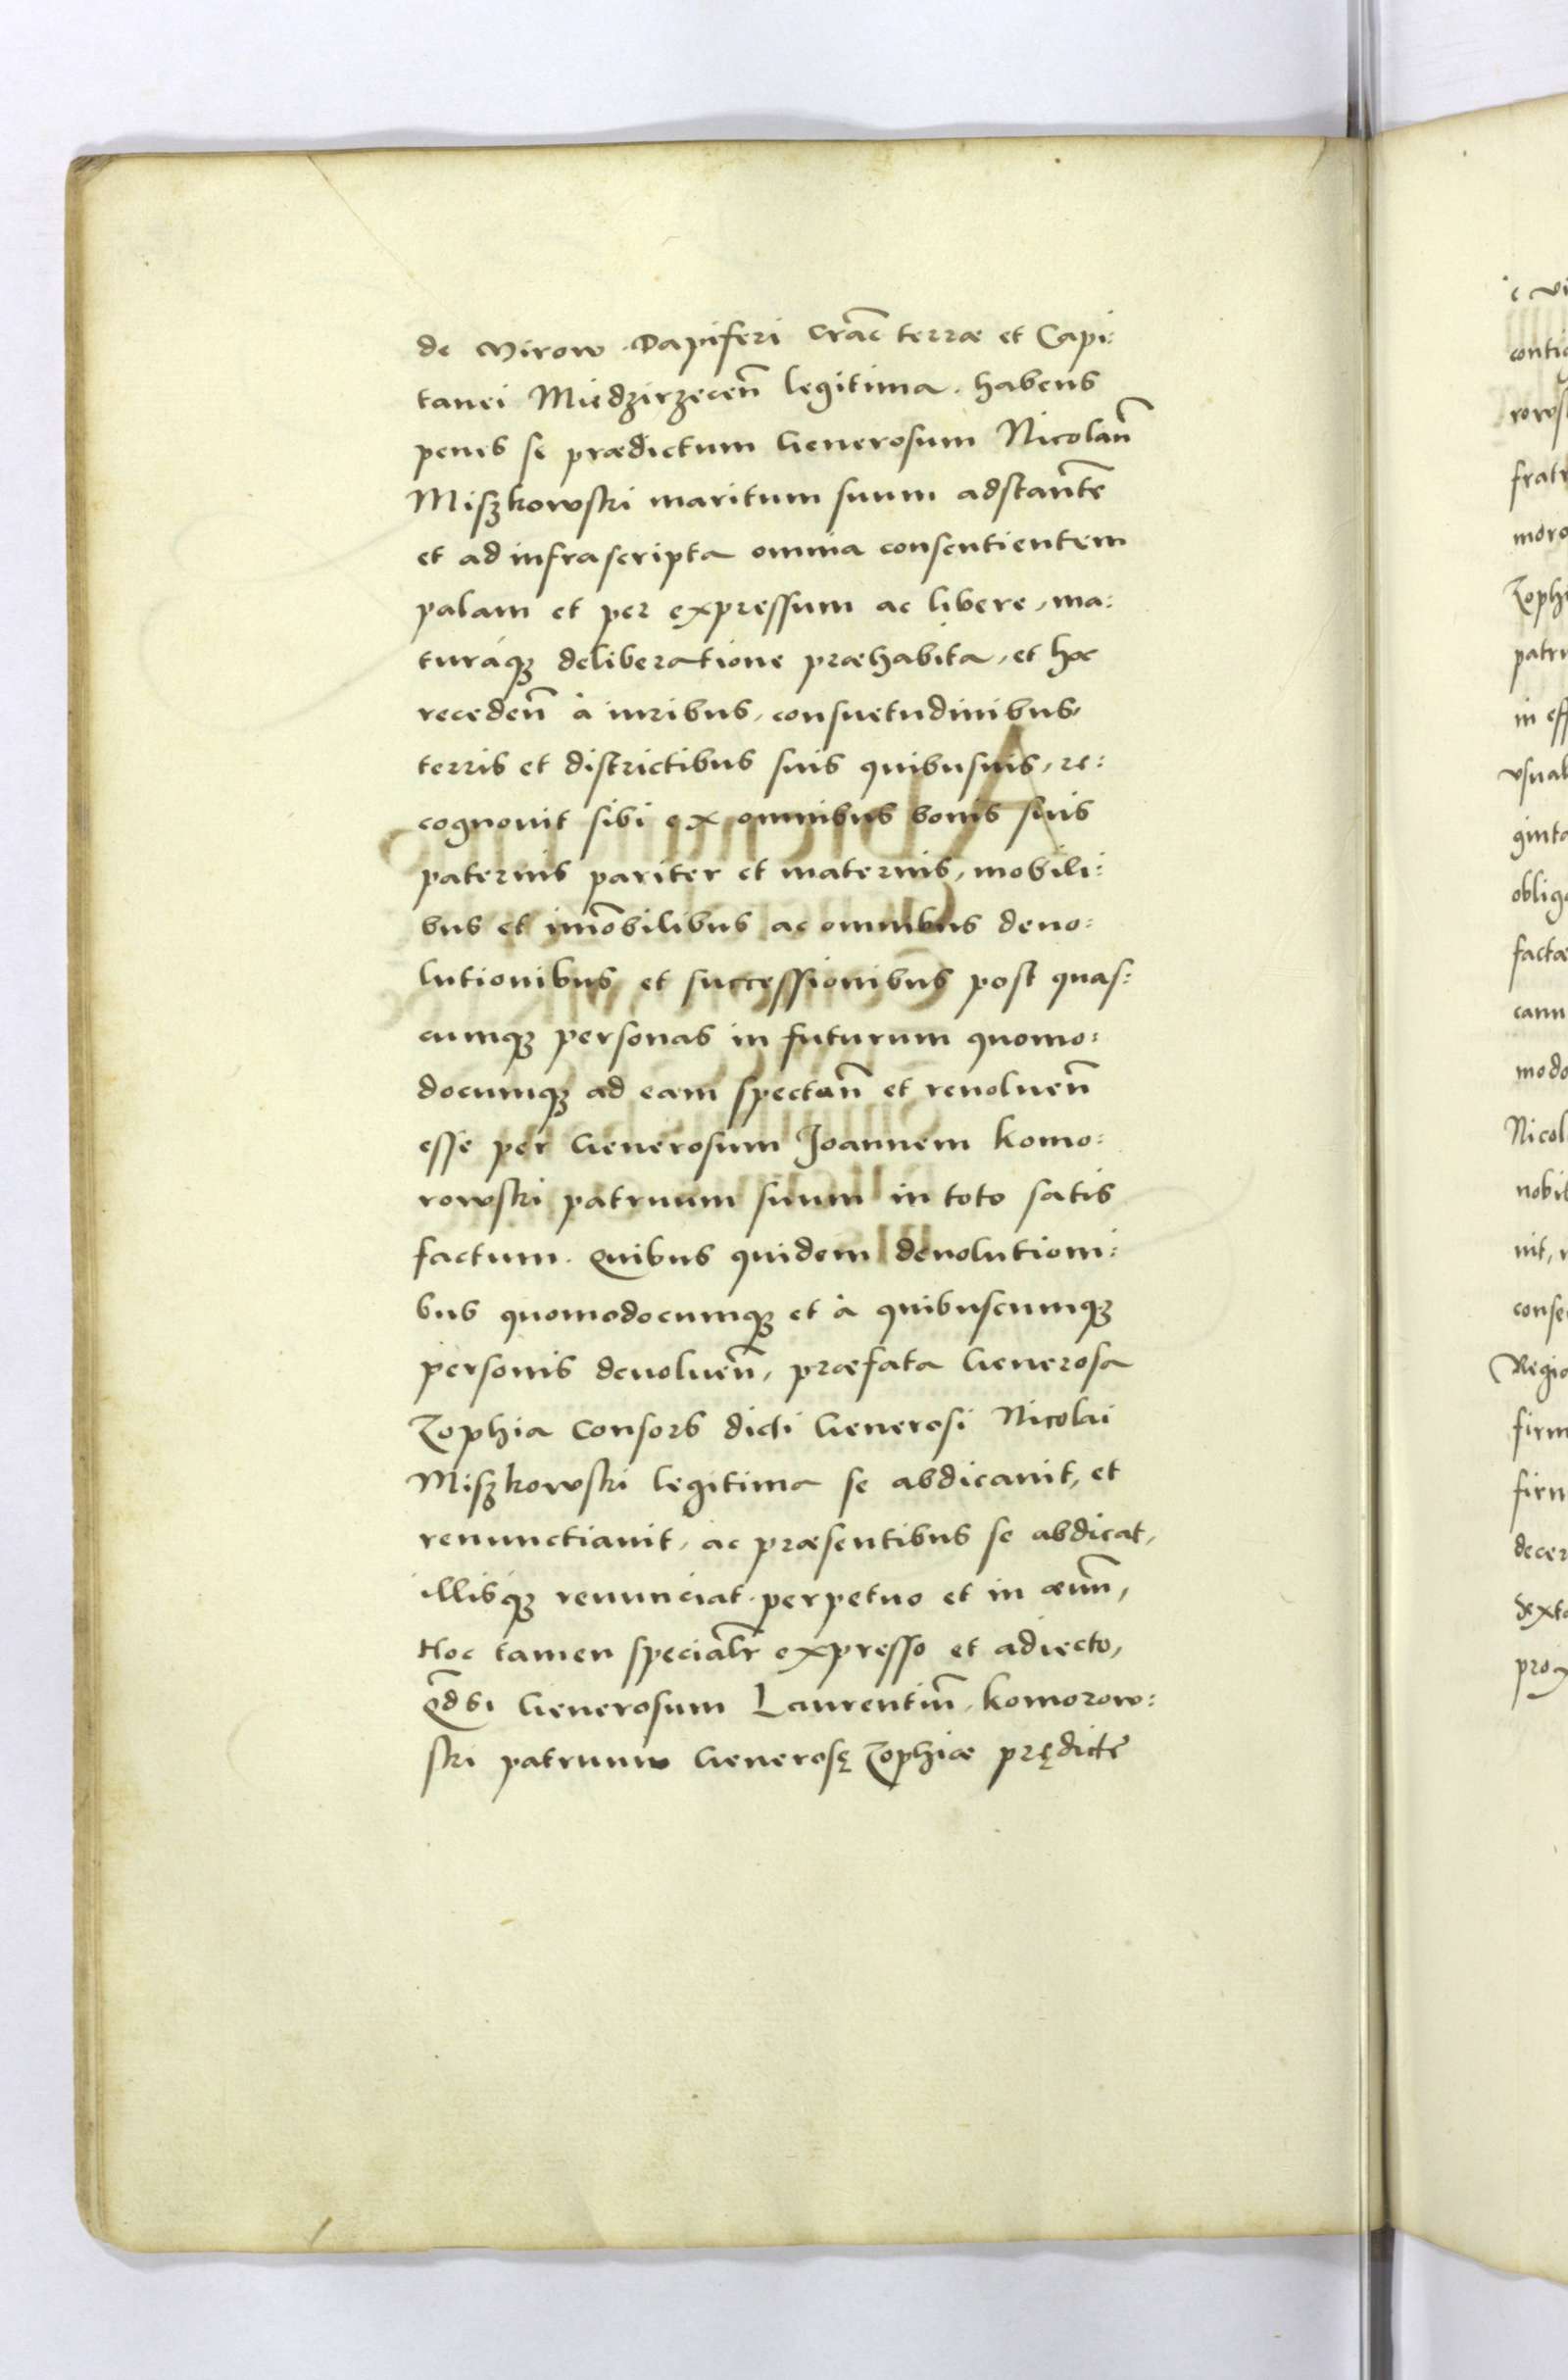 de Mirow Dapiferi Crac̄ terræ et Capi:
tanei Miedzirzecen̄ legitima. habens
penes se prædictum Generosum Nicolau̅
Miszkowski maritum suum adstante̅
et ad infrascripta omnia consentientem
palam et per expressum ac libere, ma:
turáq; deliberatione præhabita, et hoc
receden̄ à iuribus, consuetudinibus
terris et districtibus suis quibusuis, re:
cognouit sibi ex omnibus bonis suis
paternis pariter et maternis, mobili:
bus et im̄obilibus ac omnibus deuo:
lutionibus et successionibus post quas:
cumq; personas in futurum quomo:
documq; ad eam spectan̄ et reuoluen̄
esse per Generosum Joannem Komo:
rowski patruum suum in toto satis
factum. Quibus quidem deuolutioni:
bus quomodocumq; et à quibuscumq;
personis deuoluen̄, præfata Generosa
Zophia Consors dicti Generosi Nicolai
Miszkowski legitima se abdicauit, et
renunctiauit, ac præsentibus se abdicat,
illisq; renunciat perpetuo et in æuu̅,
Hoc tamen specialr̄ expresso et adiecto,
Qd̄ si Generosum Laurentiu̅ Komorow:
ski patruum Generosę Zophiæ prędicte
conti
rows
frat
moro
Zophi
patru
in eff
vsual
ginta
oblig
factæ
modo
Nicol
nobil
nit,
conse
Regio
firm
firm
decer
dexte